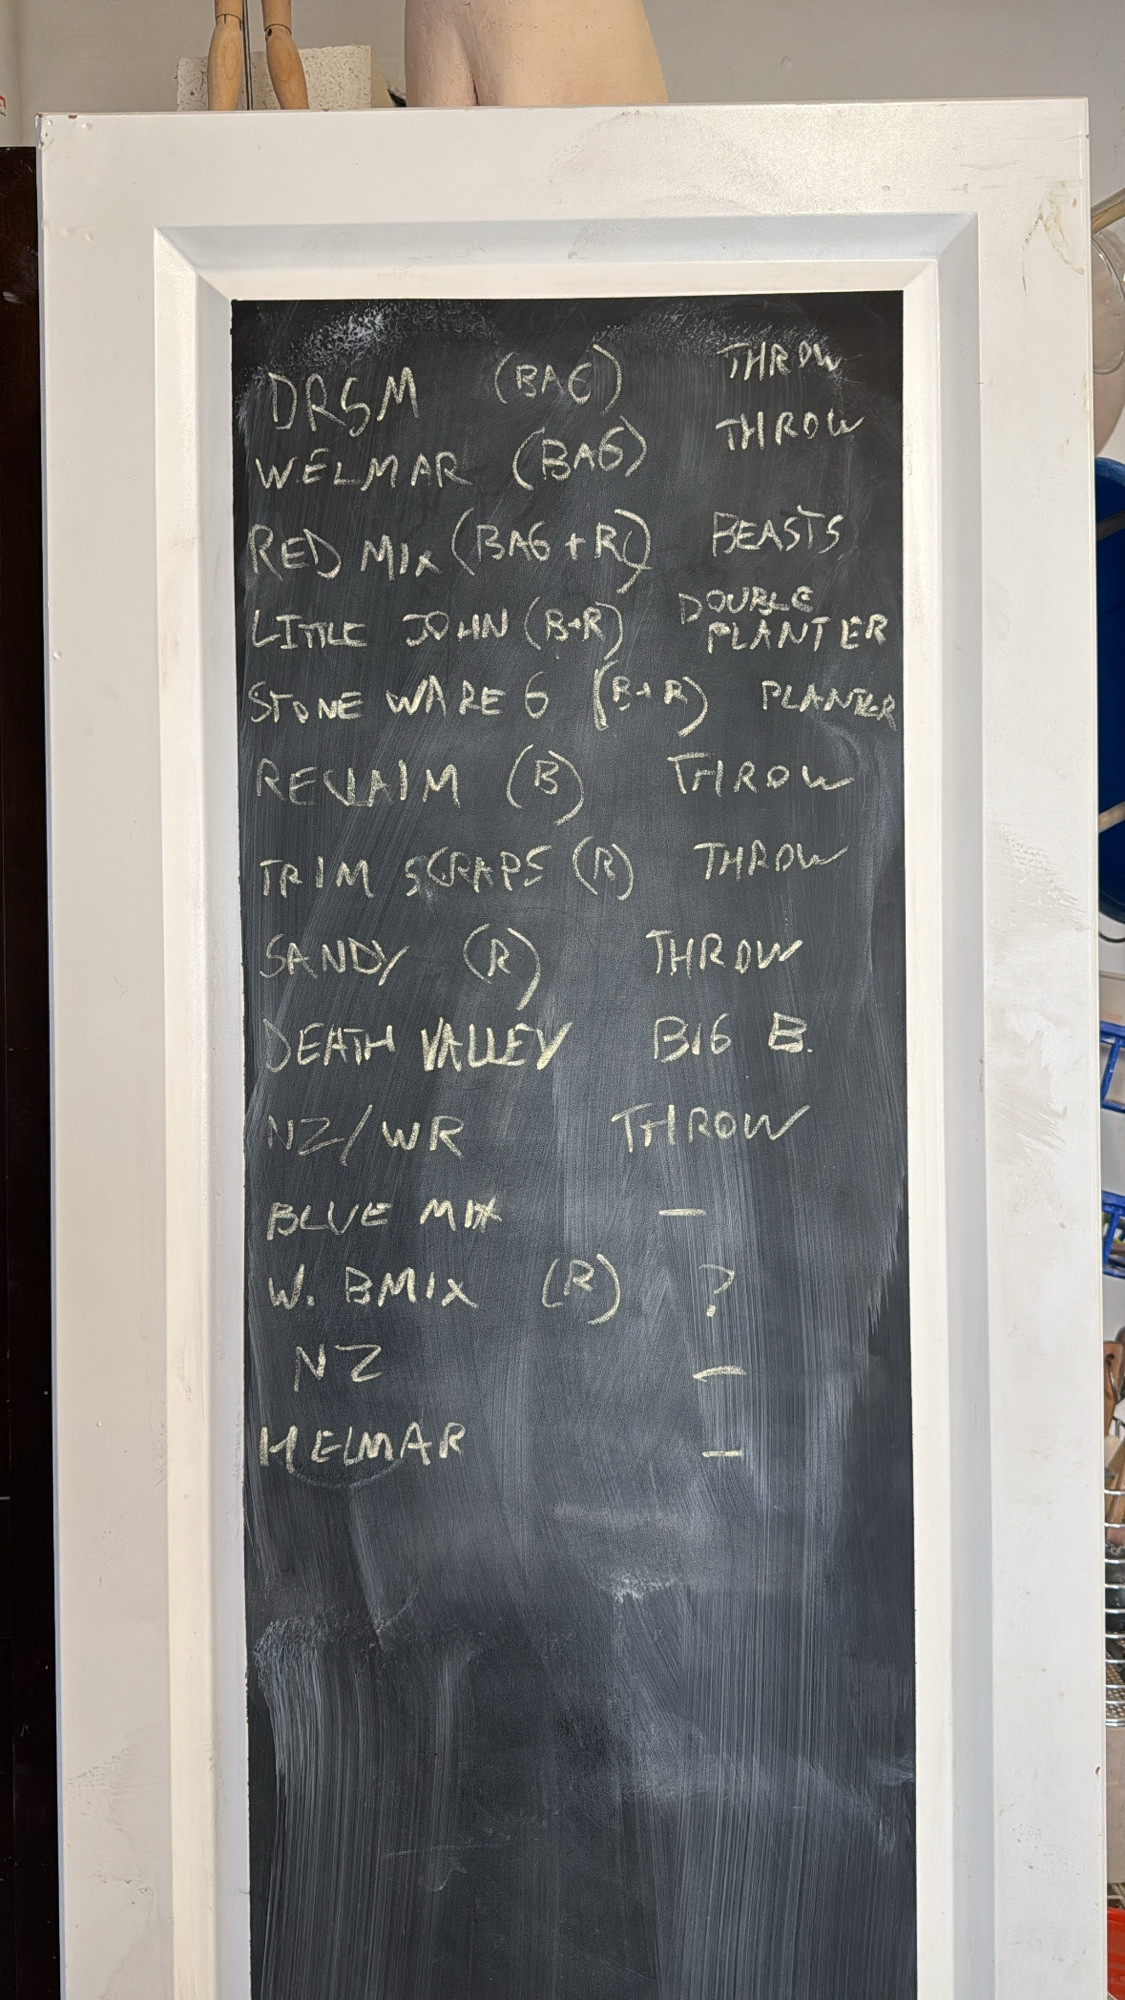 DRSM (BAG) THROW
WELMAR (BAG) THROW
RED MIX (BAG + R) BEASTS
LITTLE JOHN (B+R) DOUBLE PLANTER
STONE WARE 6 (B+R) PLANTER
RECLAIM (B) THROW
TRIM SCRAPS (R) THROW
SANDY (R) THROW
DEATH VALLEY BIG B.
NZ/WR THROW
BLUE MIX —
W. BMIX (R) ?
NZ —
HELMAR —